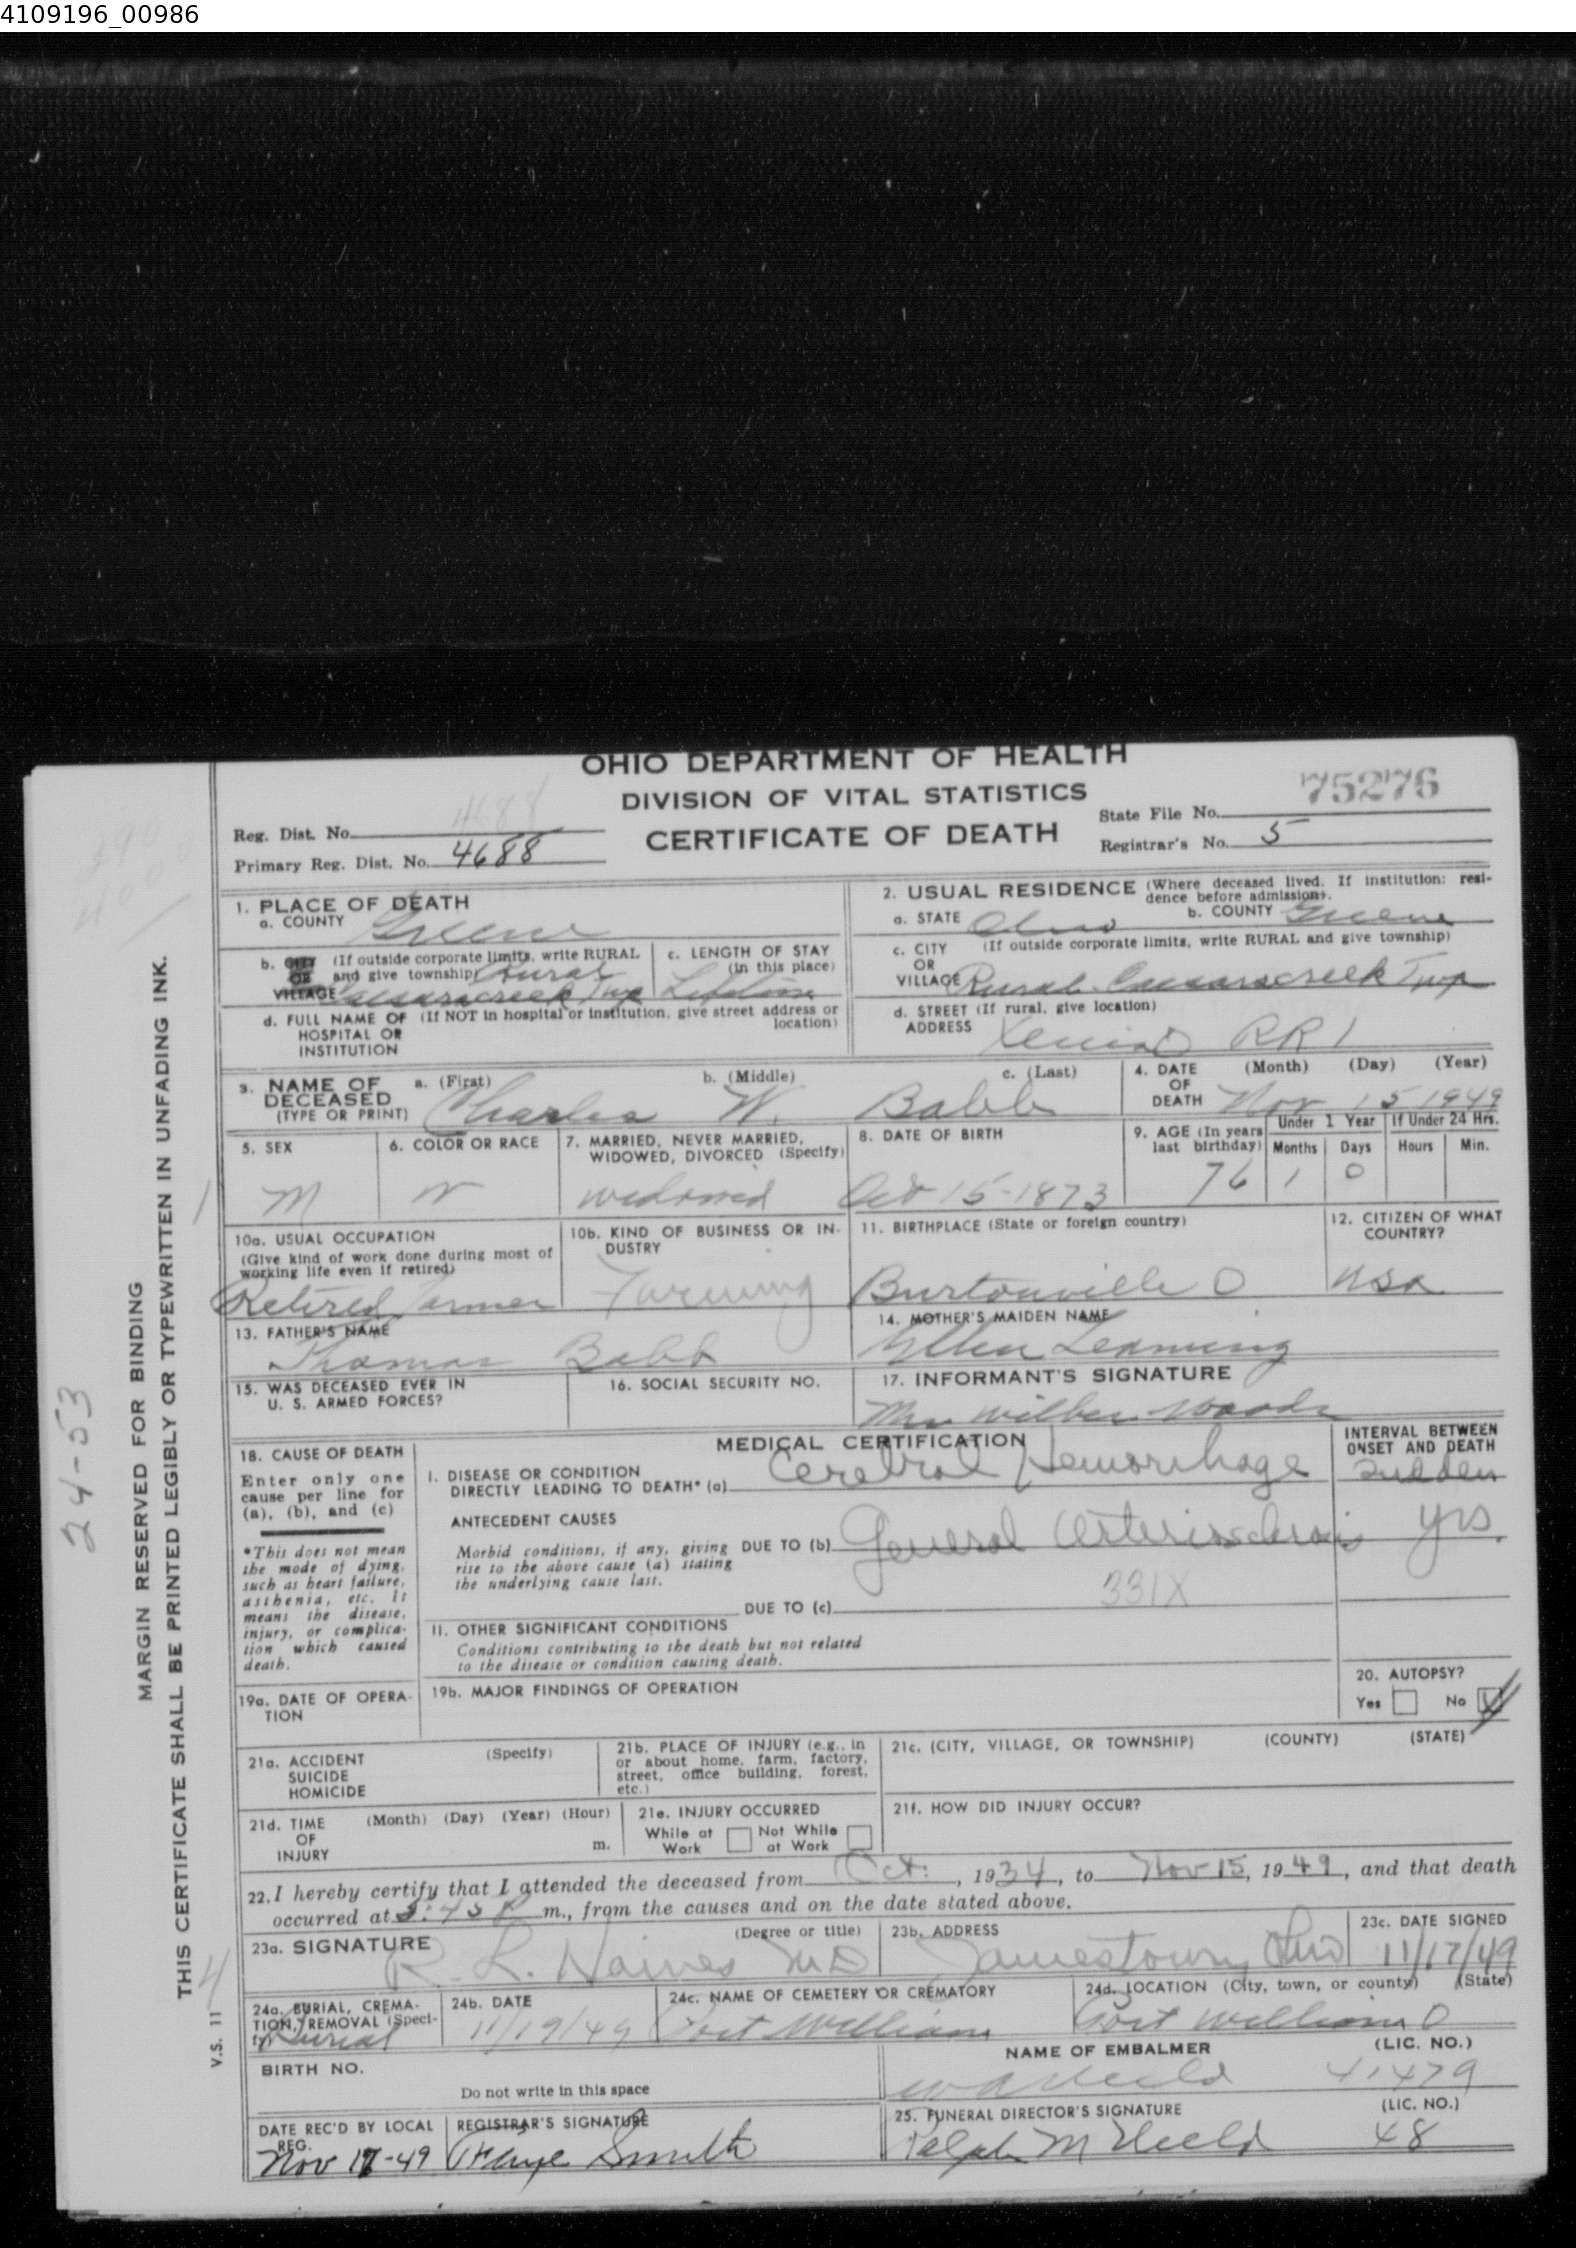 4109196_00986
OHIO DEPARTMENT OF HEALTH
DIVISION OF VITAL STATISTICS
CERTIFICATE OF DEATH
Reg. Dist. No. 4688
Primary Reg. Dist. No. 4688
State File No. 75276
Registrar's No. 5
1. PLACE OF DEATH
a. COUNTY Greene
b. CITY OR VILLAGE (If outside corporate limits, write RURAL and give township) Rural
Caesarscreek Twp
c. LENGTH OF STAY (in this place)
Lifetime
d. FULL NAME OF HOSPITAL OR INSTITUTION (If NOT in hospital or institution, give street address or location)
2. USUAL RESIDENCE (Where deceased lived. If institution: residence before admission).
a. STATE Ohio b. COUNTY Greene
c. CITY OR VILLAGE (If outside corporate limits, write RURAL and give township)
Rural. Caesarscreek Twp
d. STREET ADDRESS (If rural, give location)
Xenia O RR 1
3. NAME OF DECEASED (TYPE OR PRINT)
a. (First) b. (Middle) c. (Last)
Charles W. Babb
4. DATE OF DEATH (Month) (Day) (Year)
Nov 15 1949
5. SEX
M
6. COLOR OR RACE
W
7. MARRIED, NEVER MARRIED, WIDOWED, DIVORCED (Specify)
widowed
8. DATE OF BIRTH
Oct 15-1873
9. AGE (In years last birthday)
76
Under 1 Year
Months Days
1 0
If Under 24 Hrs.
Hours Min.
10a. USUAL OCCUPATION
(Give kind of work done during most of working life even if retired)
Retired farmer
10b. KIND OF BUSINESS OR INDUSTRY
Farming
11. BIRTHPLACE (State or foreign country)
Burtonville O
12. CITIZEN OF WHAT COUNTRY?
USA
13. FATHER'S NAME
Thomas Babb
14. MOTHER'S MAIDEN NAME
Ellen Leaming
15. WAS DECEASED EVER IN U. S. ARMED FORCES?
16. SOCIAL SECURITY NO.
17. INFORMANT'S SIGNATURE
Mrs Wilber Woods
18. CAUSE OF DEATH
Enter only one cause per line for (a), (b), and (c)
*This does not mean the mode of dying, such as heart failure, asthenia, etc. It means the disease, injury, or complication which caused death.
MEDICAL CERTIFICATION
INTERVAL BETWEEN ONSET AND DEATH
I. DISEASE OR CONDITION DIRECTLY LEADING TO DEATH* (a) Cerebral Hemorrhage
sudden
ANTECEDENT CAUSES
Morbid conditions, if any, giving rise to the above cause (a) stating the underlying cause last.
DUE TO (b) General Arteriosclerosis
yrs.
331X
DUE TO (c)
II. OTHER SIGNIFICANT CONDITIONS
Conditions contributing to the death but not related to the disease or condition causing death.
19a. DATE OF OPERATION
19b. MAJOR FINDINGS OF OPERATION
20. AUTOPSY?
Yes No
21a. ACCIDENT SUICIDE HOMICIDE (Specify)
21b. PLACE OF INJURY (e.g., in or about home, farm, factory, street, office building, forest, etc.)
21c. (CITY, VILLAGE, OR TOWNSHIP) (COUNTY) (STATE)
21d. TIME OF INJURY (Month) (Day) (Year) (Hour) m.
21e. INJURY OCCURRED
While at Work Not While at Work
21f. HOW DID INJURY OCCUR?
22. I hereby certify that I attended the deceased from Oct. , 1934, to Nov 15, 1949, and that death
occurred at 3:45 P m., from the causes and on the date stated above.
23a. SIGNATURE (Degree or title)
R. L. Haines MD
23b. ADDRESS
Jamestown, Ohio
23c. DATE SIGNED
11/17/49
24a. BURIAL, CREMATION, REMOVAL (Specify)
Burial
24b. DATE
11/19/49
24c. NAME OF CEMETERY OR CREMATORY
Port William
24d. LOCATION (City, town, or county) (State)
Port William O
BIRTH NO.
Do not write in this space
NAME OF EMBALMER (LIC. NO.)
25. FUNERAL DIRECTOR'S SIGNATURE (LIC. NO.)
Ralph M 48
DATE REC'D BY LOCAL REG.
Nov 17-49
REGISTRAR'S SIGNATURE
Faye Smith
MARGIN RESERVED FOR BINDING
THIS CERTIFICATE SHALL BE PRINTED LEGIBLY OR TYPEWRITTEN IN UNFADING INK.
V.S. 11
24-53
1
4